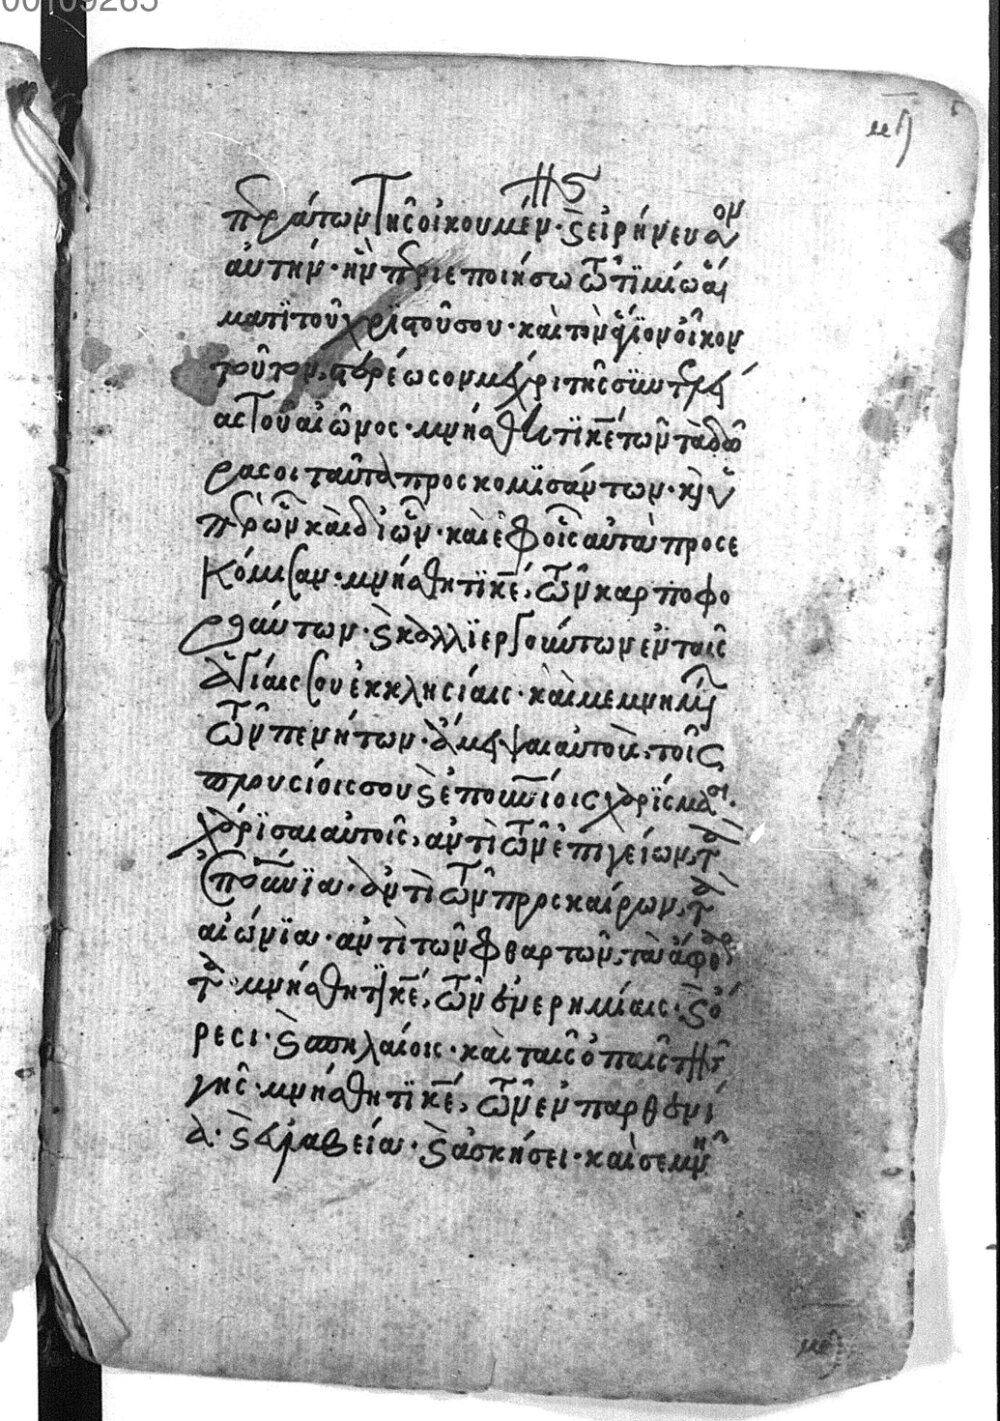 00109265
μη
περάτων τῆς οἰκουμέν· ϗ εἰρήνευσον
αὐτὴν· ἣν περιεποιήσω τῶ τϊμίω αἵ
ματϊ τοῦ χριστοῦ σου· καὶ τὸν ἅγϊον οἶκον
τοῦτον, στερέωσον μέχρι τῆς συντελεί
ας τοῦ αἰῶνος· μνήσθητϊ κε τῶν τὰ δῶ
ρα σοι ταῦτα προσκομϊσάντων· κ ὑ
πὲρ ὧν καὶ δι ὧν· καὶ ἐφ οἷς αὐτὰ προσε
κόμισαν· μνήσθητϊ κε, τῶν καρποφο
ρούντων· ϗ καλλϊεργούντων ἐν ταῖς
ἁγίαις σου ἐκκλησίαις· καὶ μεμνημέ
τῶν πενήτων· ἄμειψαι αὐτοὺς, τοῖς
πλουσίοις σου ϗ ἐπουνίοις χαρϊσμασι·
χάρϊσαι αὐτοῖς, ἀντὶ τῶν ἐπιγείων, τὰ
ἐπουάνϊα· ἀντὶ τῶν προσκαίρων, τὰ
αἰώνϊα· ἀντὶ τῶν φθαρτῶν, τὰ ἄφθαρ
τα· μνήσθητϊ κε, τῶν ἐν ἐρημίαις· ϗ ὄ
ρεσι· ϗ σπηλαίοις· καὶ ταῖς ὀπαῖς τῆς
γῆς· μνήσθητϊ κε, τῶν ἐν παρθενί
α· ϗ εὐλαβεία· ϗ ἀσκήσει· καὶ σεμνῆ